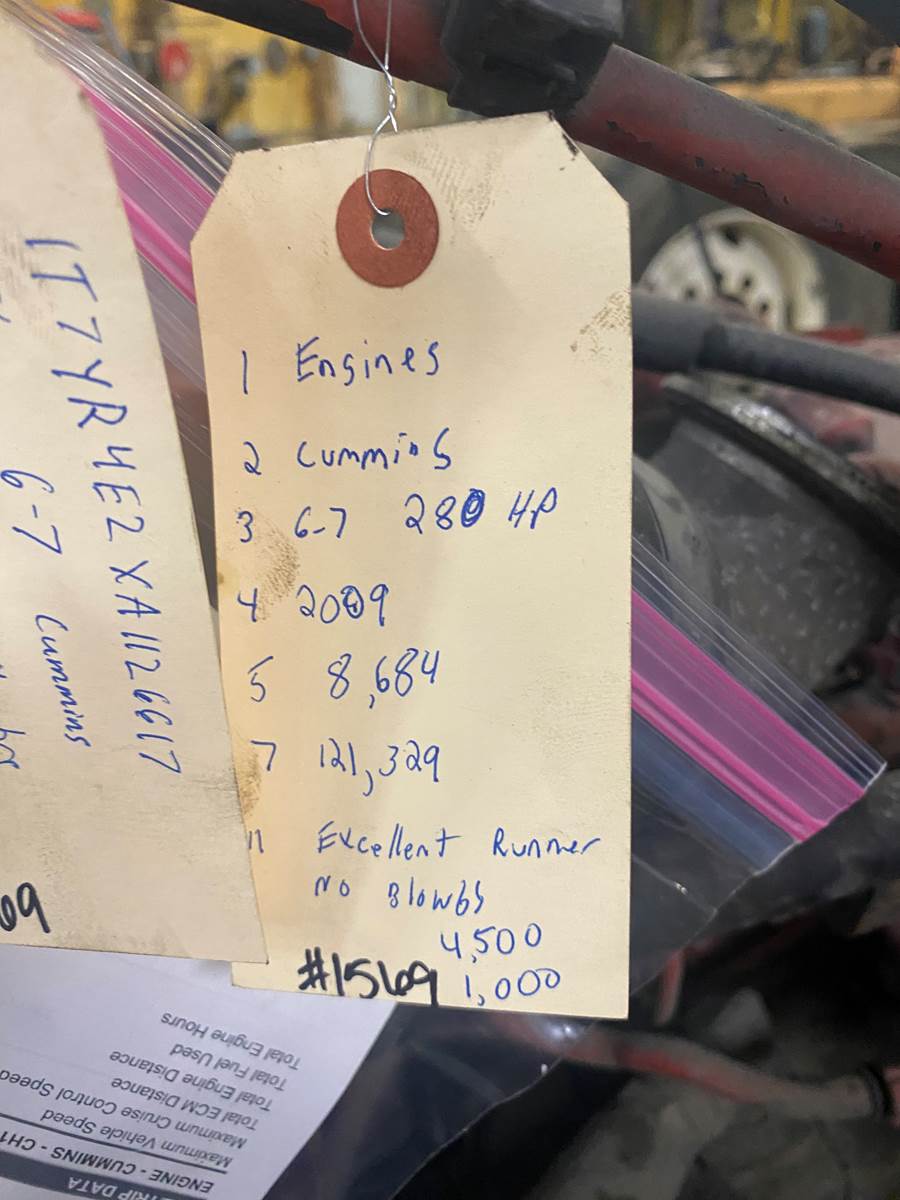 1 Engines
2 Cummins
3 6-7 280 HP
4 2009
5 8,684
7 121,329
11 Excellent Runner
No Blowby
4,500
#1569 1,000
1T7YR4E2XA1126617
6-7 Cummins
69
TRIP DATA
ENGINE - CUMMINS - CH1
Maximum Vehicle Speed
Maximum Cruise Control Speed
Total ECM Distance
Total Engine Distance
Total Fuel Used
Total Engine Hours